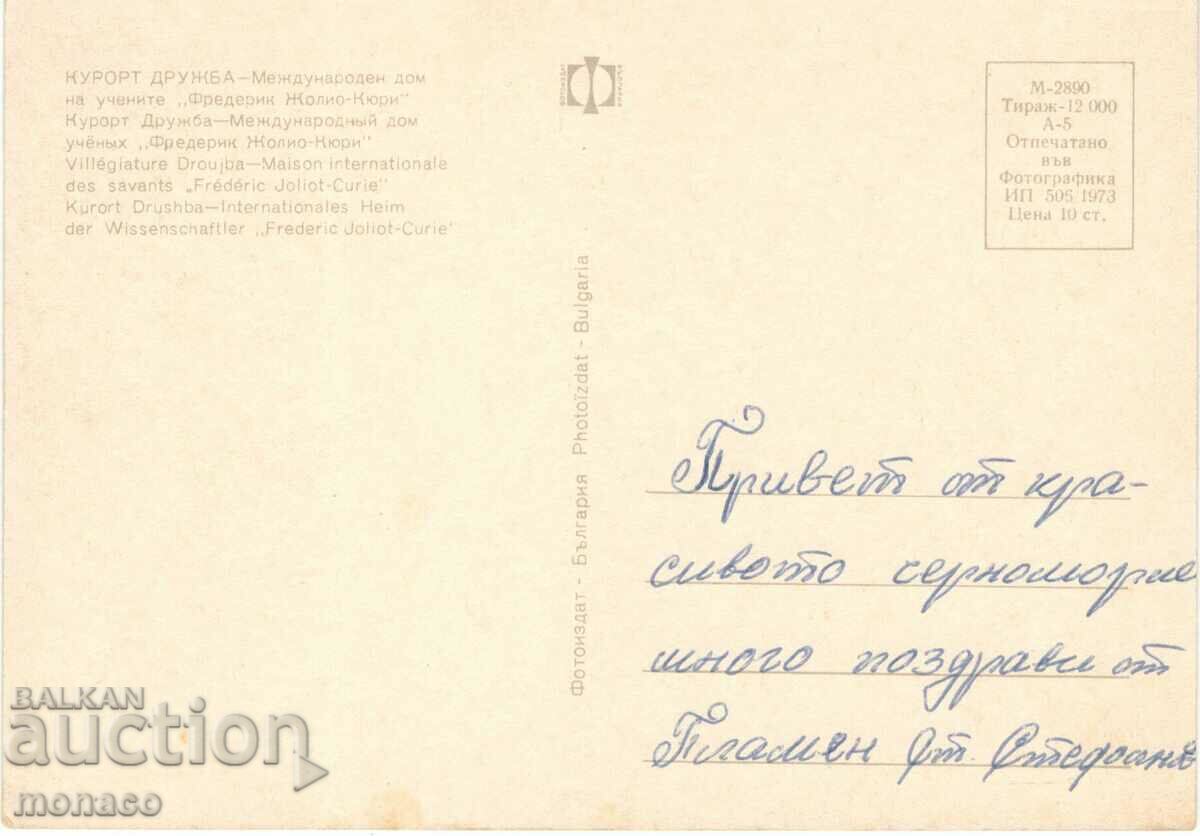 КУРОРТ ДРУЖБА—Международен дом
на учените „Фредерик Жолио-Кюри"
Курорт Дружба—Международный дом
учёных „Фредерик Жолио-Кюри"
Villégiature Droujba—Maison internationale
des savants „Frédéric Joliot-Curie"
Kurort Drushba—Internationales Heim
der Wissenschaftler „Frederic Joliot-Curie'
ФОТОИЗДАТ
БЪЛГАРИЯ
М-2890
Тираж-12 000
А-5
Отпечатано
във
Фотографика
ИП 506 1973
Цена 10 ст.
Фотоиздат - България Photoïzdat - Bulgaria
Привет от кра-
сивото черноморие
много поздрави от
Пламен Ст.
BALKAN
auction
monaco